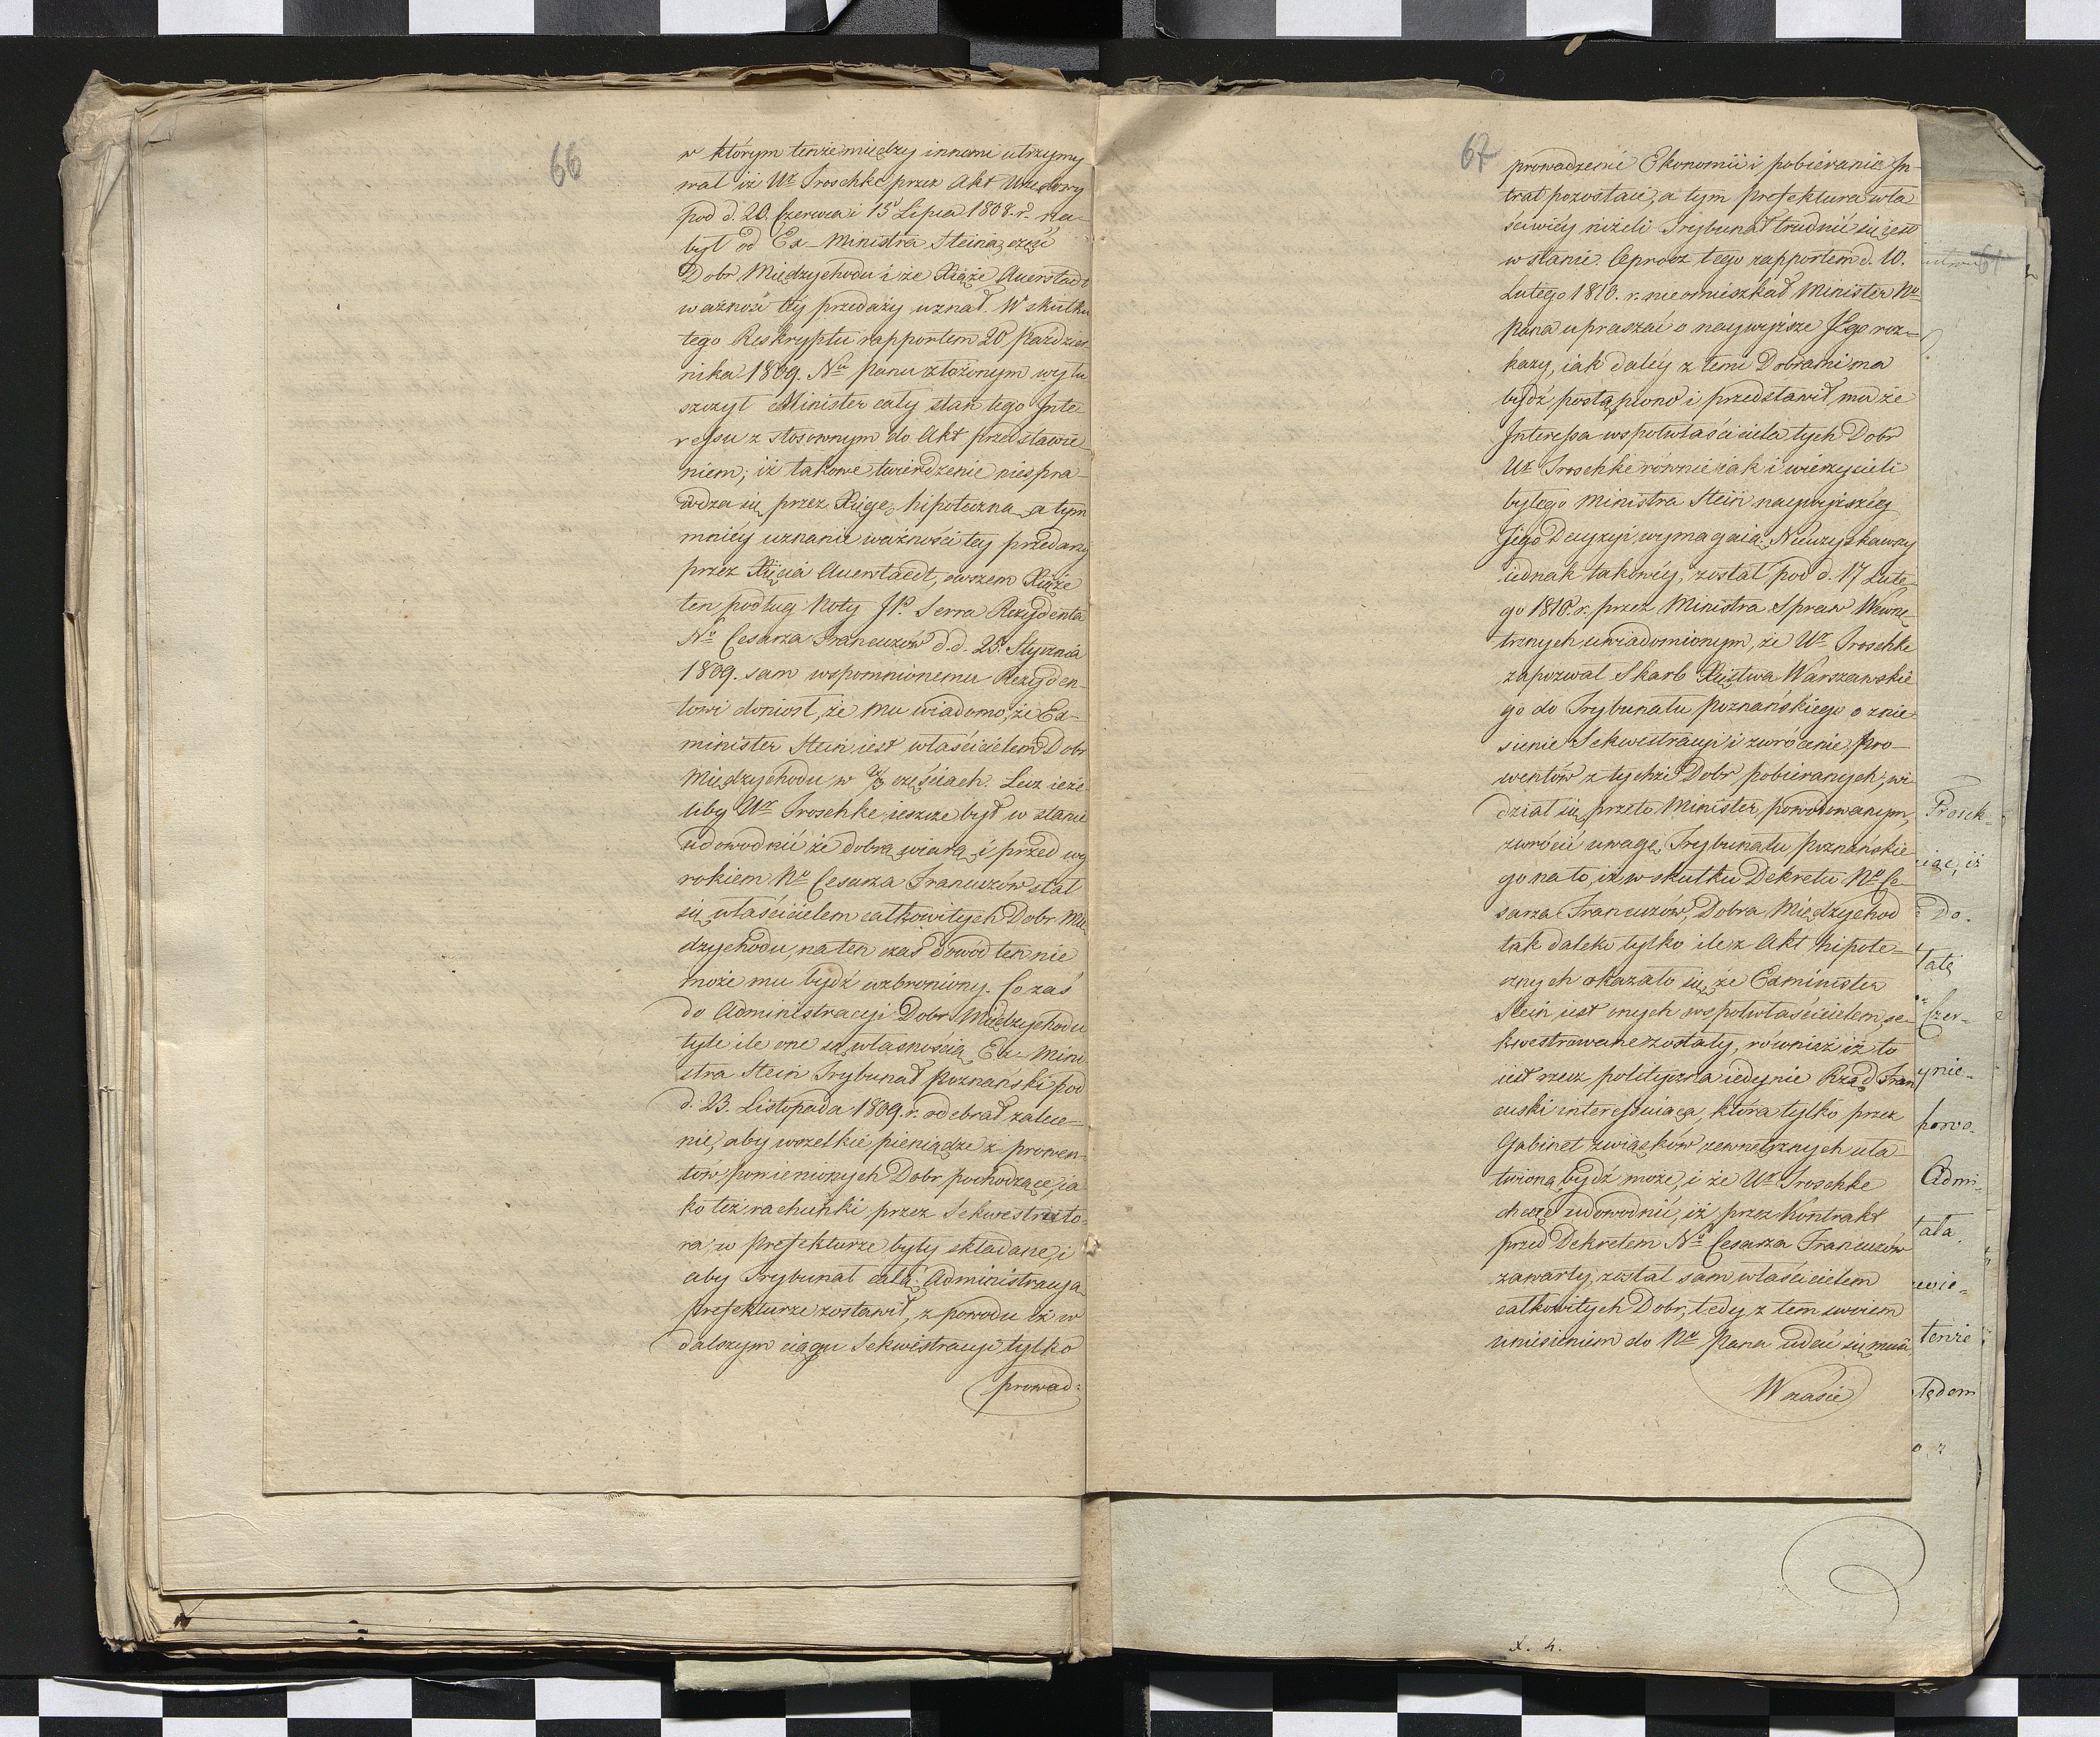 66
w którym tenże między innemi utrzymy
wał iż Ur Troschke przez Akt Urzędowy
pod d. 20. Czerwca i 15 Lipca 1808. r. na-
był od Ex-Ministra Steina część
Dobr Międzychodu i że Xiąże Auerstaedt
ważność tey przedaży uznał. W skutku
tego Reskryptu rapportem 20 Paździer
nika 1809. Nu Panu złożonym wytu
szczył Minister cały stan tego Inte
ressu z stosownym do Akt przedstawie
niem; iż takowe twierdzenie niespra-
wdza się przez Xięgę hipoteczną, a tym
mniéy uznanie ważności tey przedaży
przez Xięcia Auerstaedt, owszem Xiąże
ten podług Noty JP. Serra Rezydenta
No Cesarza Francuzów d. d. 25. Stycznia
1809. sam wspomnionemu Rezyden-
towi doniosł, że mu wiadomo, że Ex-
minister Stein iest właścicielem Dobr
Międzychodu w 2/3 częściach. Lecz ieże-
liby Ur Troschke ieszcze był w stanie
udowodnić że dobrą wiarą i przed wy
rokiem No Cesarza Francuzów stał
się właścicielem całkowitych Dobr Mię
dzychodu, na ten czas dowod ten nie
może mu bydź wzbroniony. Co zaś
do Administracyi Dobr Międzychodu
tyle ile one są własnością Ex-Mini
stra Stein Trybunał Poznański pod
d. 23. Listopada 1809. r. odebrał zalece-
nie, aby wszelkie pieniądze z prowen-
tów pomienionych Dobr pochodzące, ia
ko też rachunki przez Sekwestrato-
ra, w Prefekturze były składane, i
aby Trybunał całą Administracyą
Prefekturze zostawił, z powodu iż w
dalszym ciągu Sekwestracyi tylko
prowad-
67
prowadzenie Ekonomii i pobieranie In-
trat pozostaie, a tym Prefektura wła
ściwiéy niżeli Trybunał trudnić się iest
w stanie. Oprócz tego rapportem d. 10.
Lutego 1810. r. nieomieszkał Minister No
Pana upraszać o naywyższe Jego roz-
kazy, iak daléy z temi Dobrami ma
bydź postąpiono i przedstawił mu że
Interessa wspołwłaściciela tych Dobr
Ur Troschke równie iak i wierzycieli
byłego Ministra Stein naywyższéy
Jego Decyzyi wymagaią. Nieuzyskawszy
iednak takowéy, został pod d. 17 Lute
go 1810. r. przez Ministra Spraw Wewnę
trznych uwiadomionym, że Ur Troschke
zapozwał Skarb Xięstwa Warszawskie
go do Trybunału Poznańskiego o znie
sienie Sekwestracyi i zwrócenie pro-
wentów z tychże Dobr pobieranych; wi
dział się przeto Minister powodowanym,
zwrócić uwagę Trybunału Poznańskie
go na to, iż w skutku Dekretu No Ce-
sarza Francuzów, Dobra Międzychod
tak daleko tylko ile z Akt hipote-
cznych okazało się, że Exminister
Stein iest onych wspołwłaścicielem, se-
kwestrowane zostały, również iż to
iest rzecz polityczna iedynie Rząd Fran
cuski interessuiąca, która tylko przez
Gabinet związków zewnętrznych uła-
twioną bydź może, i że Ur Troschke
chcąc udowodnić, iż przez Kontrakt
przed Dekretem No Cesarza Francuzów
zawarty, został sam właścicielem
całkowitych Dobr, tedy z tem swoiem
uniesieniem do No Pana udać się musi
Wczasie
Trosch-
iąc, iż
Do.
tatę
Czer-
ynie-
powo-
Admi-
tała
ewie-
tenże
łędem
o, z
x. 4.